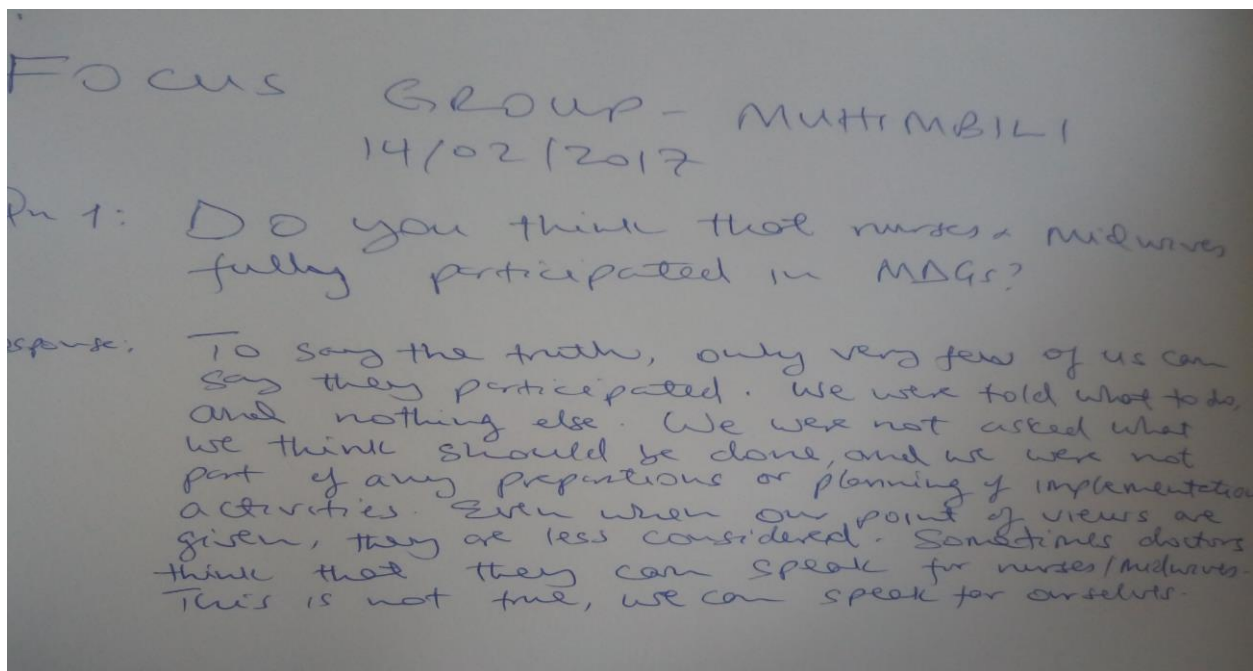 FOCUS GROUP - MUHIMBILI
14/02/2017
Qn 1: Do you think that nurses & midwives
fully participated in MDGs?
esponse: To say the truth, only very few of us can
say they participated. We were told what to do,
and nothing else. We were not asked what
we think should be done, and we were not
part of any prepartions or planning of implementation
activities. Even when our point of views are
given, they are less considered. Sometimes doctors
think that they can speak for nurses/midwives.
This is not true, we can speak for ourselves.